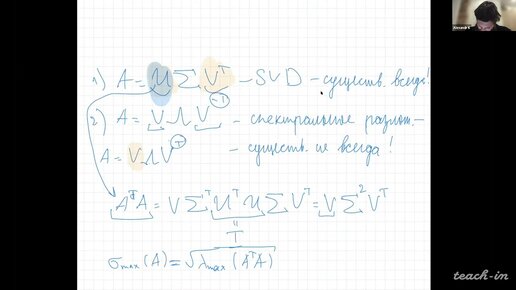 1) A = U Σ Vᵀ – SVD – существ. всегда!
2) A = V Λ V⁻¹ – спектральное разлож. –
A = V Λ Vᵀ – существ. не всегда!
AᵀA = V Σᵀ Uᵀ U Σ Vᵀ = V Σ² Vᵀ
"
I
σmax (A) = √λmax (AᵀA)
teach-in